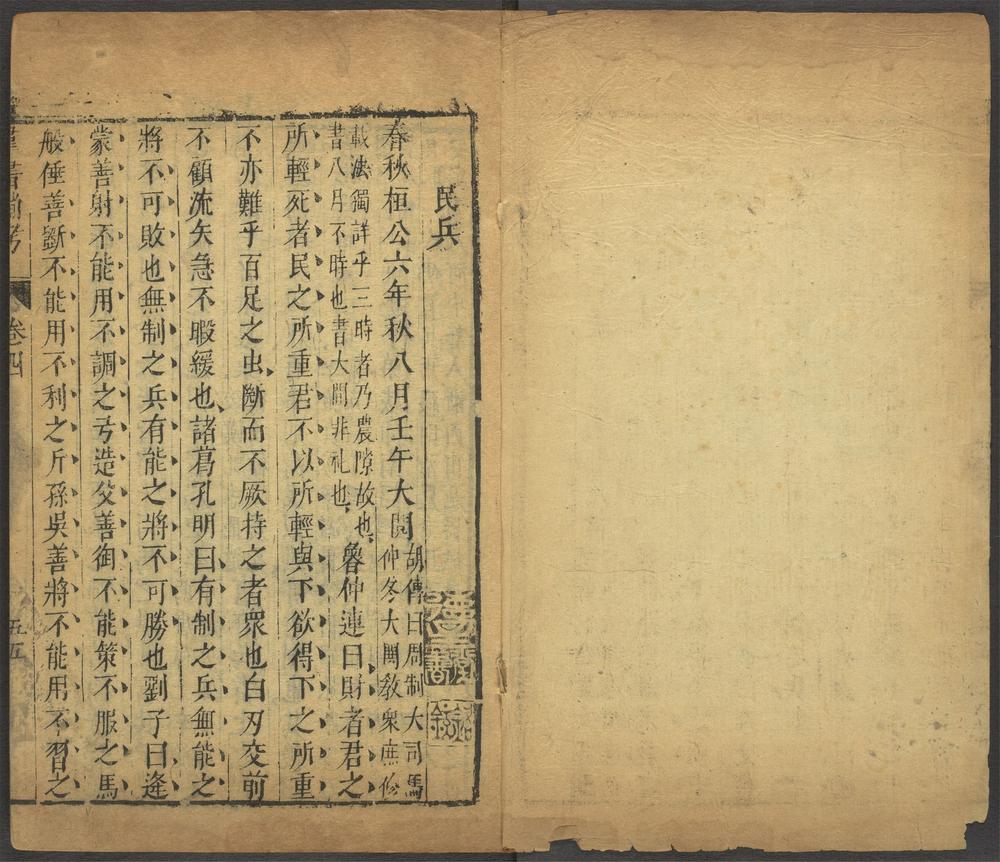 民兵
春秋桓公六年秋八月壬午大閱胡傳曰周制大司馬
仲冬大閱教衆庶修
戰法獨詳乎三時者乃農隙故也
書八月不時也書大閱非礼也魯仲連曰財者君之
所輕死者民之所重君不以所輕與下欲得下之所重
不亦難乎百足之虫斷而不厥持之者衆也白刃交前
不顧流矢急不暇緩也諸葛孔明曰有制之兵無能之
將不可敗也無制之兵有能之將不可勝也劉子曰逢
蒙善射不能用不調之弓造父善御不能策不服之馬
般倕善斵不能用不利之斤孫吳善將不能用不習之
卷四
五五